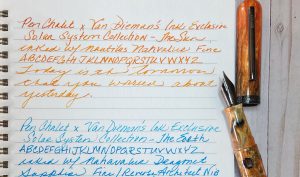 Pen Chalet x Van Dieman's Ink Exclusive
Solar System Collection - The Sun
inked w/ Nautilus Nahvalur Fine
ABCDEFGHIJKLMNOPQRSTUVWXYZ
Today is the tomorrow
that you worried about
yesterday.
Pen Chalet x Van Dieman's Ink Exclusive
Solar System Collection - The Earth
ABCDEFGHIJKLMNOPQRSTUVWXYZ
inked w/ Nahvalur
Sapphire Fine/Reverse Architect Nib